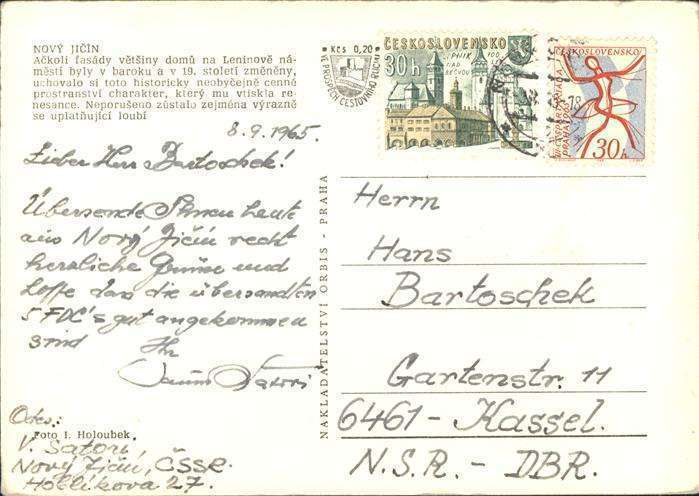 NOVÝ JIČÍN
Ačkoli fasády většiny domů na Leninově ná-
městí byly v baroku a v 19. století změněny,
uchovalo si toto historicky neobyčejně cenné
prostranství charakter, který mu vtiskla re-
nesance. Neporušeno zůstalo zejména výrazně
se uplatňující loubí
8.9.1965.
Lieber Herr Bartoschek!
Übersende Ihnen heute
aus Nový Jičín recht
herzliche Grüsse und
hoffe das die übersandten
5 FDC's gut angekommen
sind Ihr
Odes.:
Foto I. Holoubek
V. Satori,
Nový Jičín, ČSSR.
27.
NAKLADATELSTVÍ ORBIS - PRAHA
Kčs 0,20
ČESKOSLOVENSKO
30h
LIPNÍK
NAD
BEČVOU
ČESKOSLOVENSKO
PRAHA 1965
30h
Herrn
Hans
Bartoschek
Gartenstr. 11
6461 - Kassel.
N.S.R. - DBR.